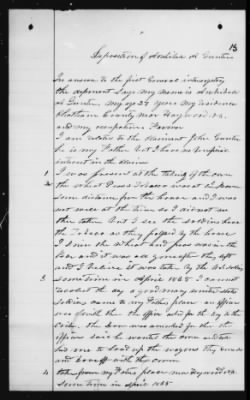 18
Deposition of Archibla M. Gunter
In answer to the first General interrogatory
the deponent Says my name is
M. Gunter, my age 27 years My residence
Chatham County, near Haywood N.C.
and my occupation a Farmer
I am related to the Claimant John Gunter
he is my Father. but I have no
interest in the Claim
1 I was present at the taking of the corn
the wheat Peas Tobacco was at the
some distance from the house and I was
not there at the time so I did not see
them taken But I seen the soldiers have
the Tobacco as they passed by the house
I seen the wheat and peas was in the
and it was all gone after they left
and I believe it was taken by the soldiers
sometime in April 1865
3 I cannot
the day a good many united states
soldiers came to my Father's place an officer
was with them the officer asked for the key to the
Crib. the door was unlocked for them the
officer said he wanted the corn and
had me to load up the wagons they
and off with the corn
4 taken from my Father's place near Haywood N.C.
Sometime in April 1865